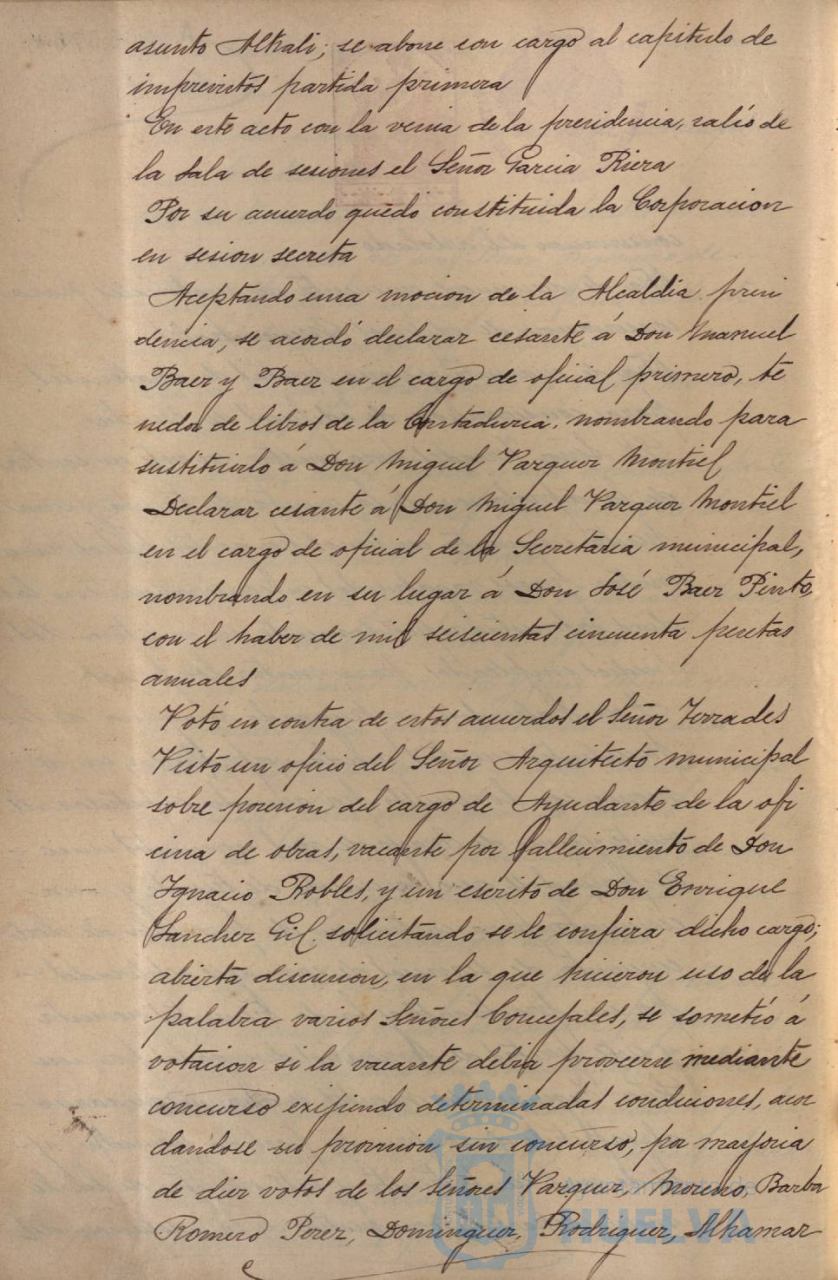 asunto Alkali; se abone con cargo al capitulo de
imprevistos partida primera
En este acto con la venia de la presidencia, salió de
la Sala de sesiones el Señor Garcia Riera
Por su acuerdo quedó constituida la Corporacion
en sesion secreta
Aceptando una mocion de la Alcaldia presi
dencia, se acordó declarar cesante á Don Manuel
Baer y Baer en el cargo de oficial primero, te
nedor de libros de la Contaduria, nombrando para
sustituirlo á Don Miguel Vazquez Montiel
Declarar cesante á Don Miguel Vazquez Montiel
en el cargo de oficial de la Secretaria municipal,
nombrando en su lugar á Don José Baer Pinto,
con el haber de mil seiscientas cincuenta pesetas
anuales
Votó en contra de estos acuerdos el Señor Terrades
Visto un oficio del Señor Arquitecto municipal
sobre posesion del cargo de Ayudante de la ofi
cina de obras, vacante por fallecimiento de Don
Ignacio Robles, y un escrito de Don Enrique
Sanchez Gil. solicitando se le confiera dicho cargo;
abierta discusion, en la que hicieron uso de la
palabra varios Señores Concejales, se sometió á
votacion si la vacante debia proveerse mediante
concurso exigiendo determinadas condiciones, acor
dandose su provision sin concurso, por mayoria
de diez votos de los Señores Vazquez, Moreno, Barba
Romero Perez, Dominguez, Rodriguez, Alkamar
HUELVA